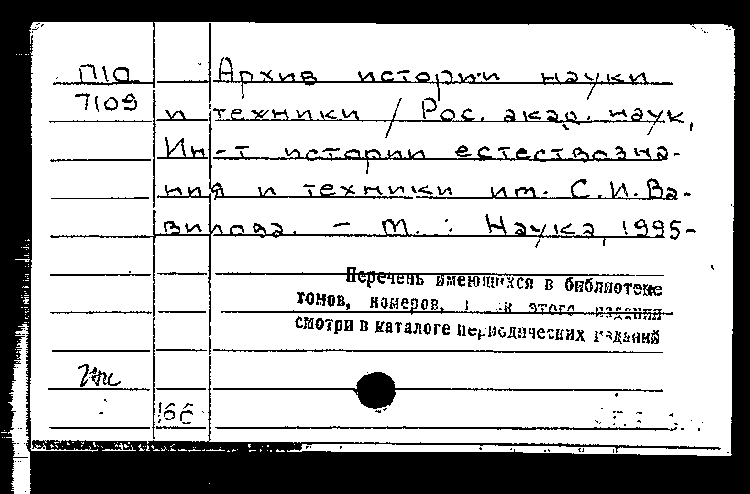 П10
7109
Архив истории науки
и техники / Рос. акад. наук,
Ин-т истории естествозна-
ния и техники им. С.И.Ва-
вилова. - М. : Наука, 1995-
Перечень имеющихся в библиотеке
томов, номеров, этого издания
смотри в каталоге периодических изданий
166